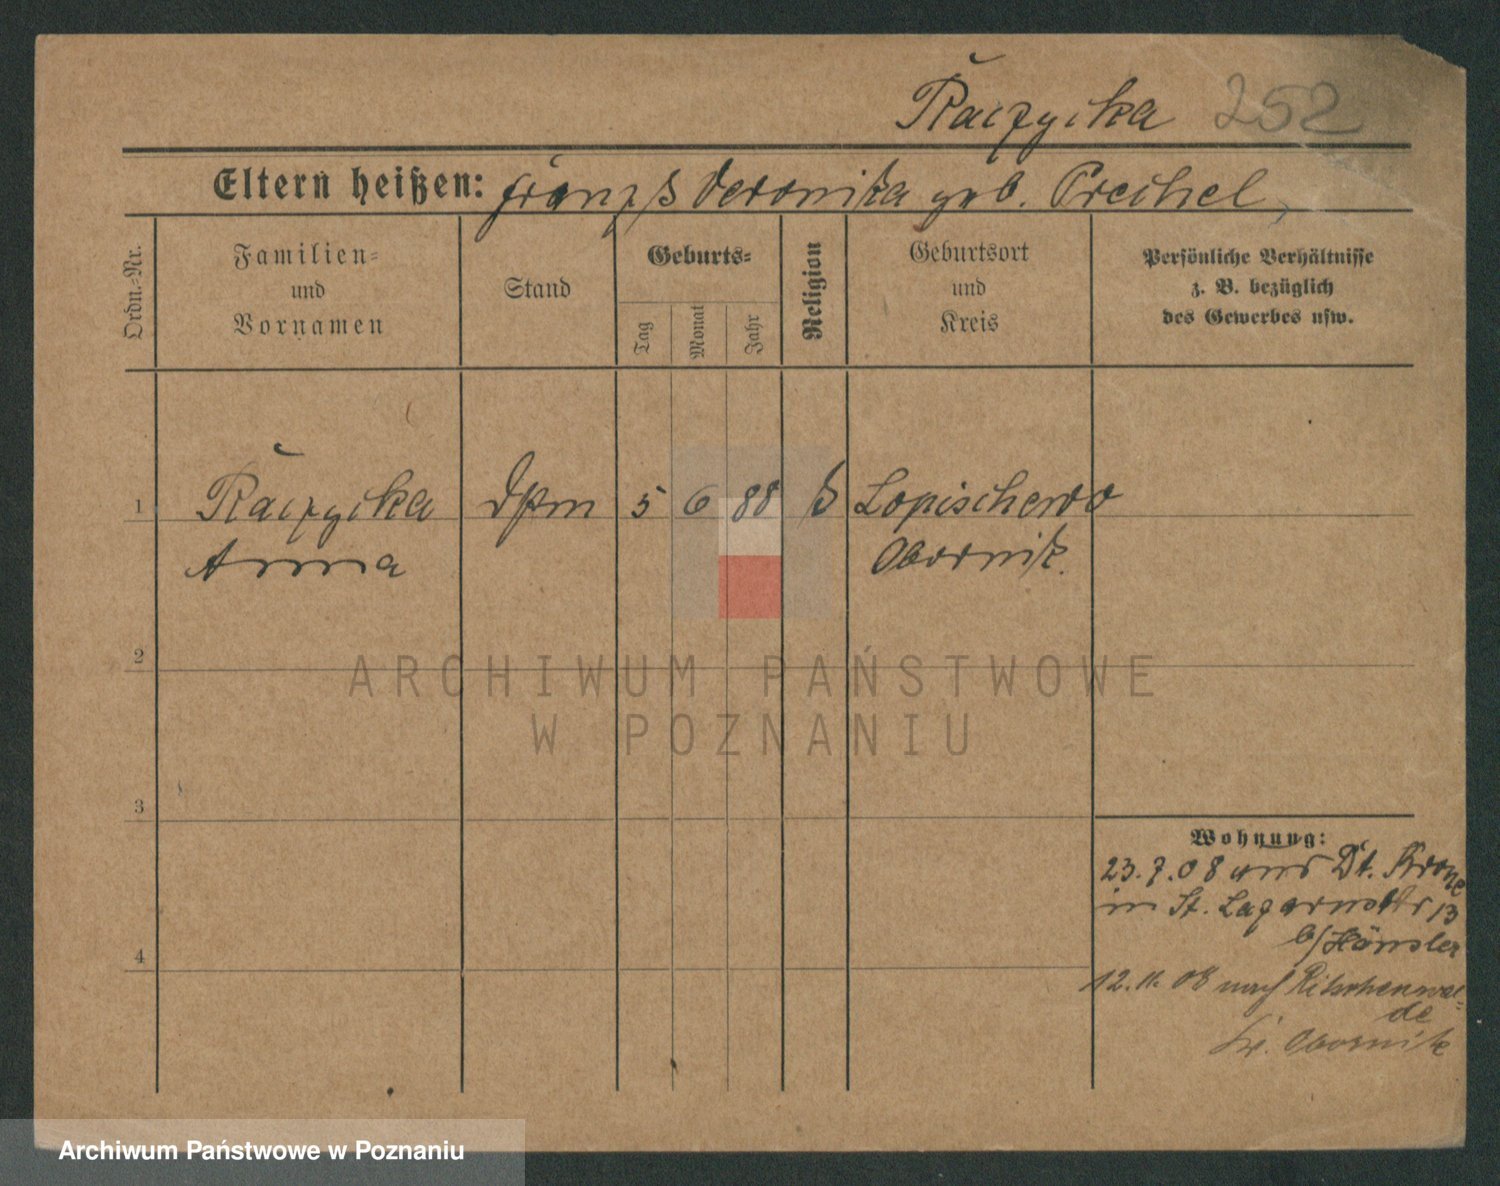 Raczycka 252
Eltern heißen: Franz & Veronika geb. Preihel,
Ordn.-Nr.
Familien-
und
Vornamen
Stand
Geburts-
Tag
Monat
Jahr
Religion
Geburtsort
und
Kreis
Persönliche Verhältnisse
z. B. bezüglich
des Gewerbes usw.
1 Raczycka 5 6 88 Lopischewo
Anna Obornik.
2
3
4
Wohnung:
23.7.08 aus Dt. Krone
in St. Lazarusstr 13
b/ Hänsler
12.11.08 nach Ritschenwal-
de
Kr. Obornik
ARCHIWUM PAŃSTWOWE
W POZNANIU
Archiwum Państwowe w Poznaniu